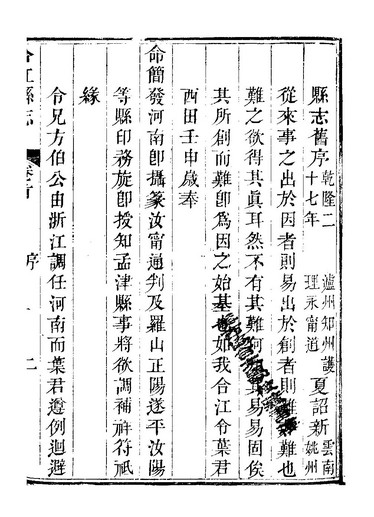 縣志舊序 乾隆二十七年 瀘州知州護理永甯道 夏詔新 雲南姚州
從來事之出於因者則易出於創者則難也
難之欲得其眞耳然不有其難何其易易固俟
其所創而難卽為因之始基如我合江令葉君
西田壬申歲奉
命簡發河南卽攝篆汝甯通判及羅山正陽遂平汝陽
等縣印務旋卽授知孟津縣事將欲調補祥符祇
緣
令兄方伯公由浙江調任河南而葉君遵例迴避
合江縣志 卷首 序 二